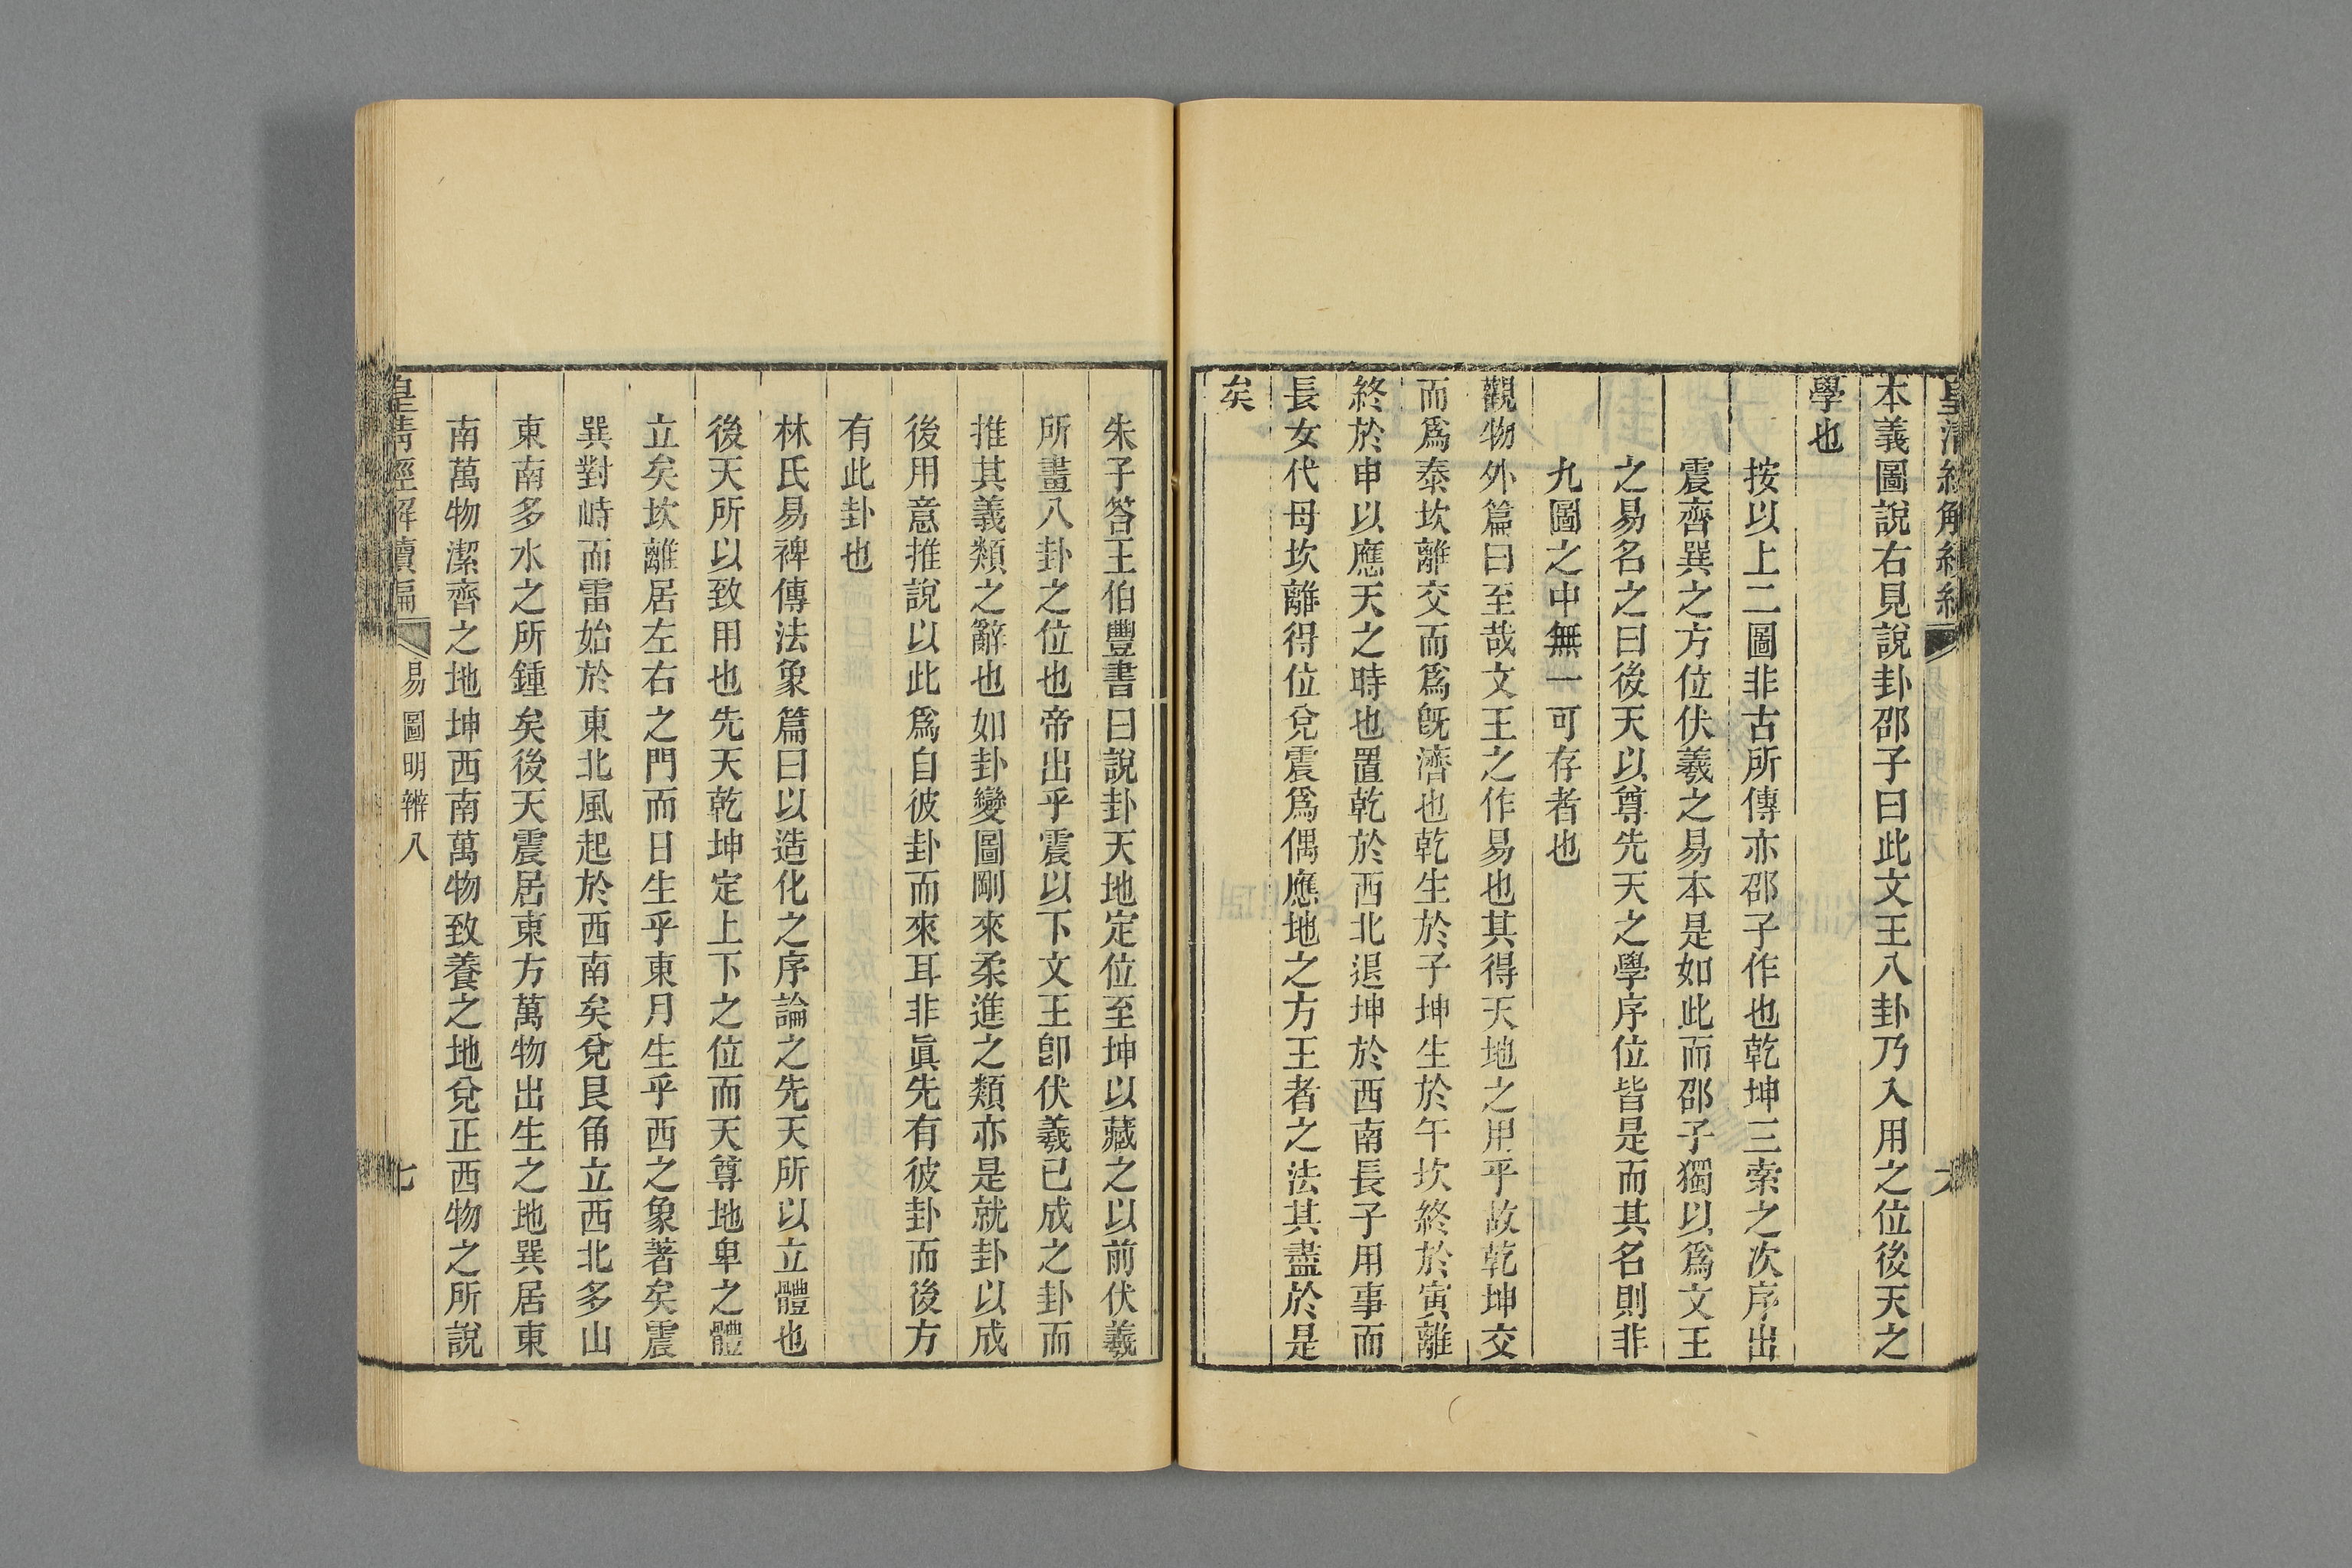 本義圖說右見說卦邵子曰此文王八卦乃入用之位後天之
學也
按以上二圖非古所傳亦邵子作也乾坤三索之次序出
震齊巽之方位伏羲之易本是如此而邵子獨以爲文王
之易名之曰後天以尊先天之學序位皆是而其名則非
九圖之中無一可存者也
觀物外篇曰至哉文王之作易也其得天地之用乎故乾坤交
而爲泰坎離交而爲旣濟也乾生於子坤生於午坎終於寅離
終於申以應天之時也置乾於西北退坤於西南長子用事而
長女代母坎離得位兌震爲偶應地之方王者之法其盡於是
矣
朱子答王伯豐書曰說卦天地定位至坤以藏之以前伏羲
所畫八卦之位也帝出乎震以下文王卽伏羲已成之卦而
推其義類之辭也如卦變圖剛來柔進之類亦是就卦以成
後用意推說以此爲自彼卦而來耳非眞先有彼卦而後方
有此卦也
林氏易裨傳法象篇曰以造化之序論之先天所以立體也
後天所以致用也先天乾坤定上下之位而天尊地卑之體
立矣坎離居左右之門而日生乎東月生乎西之象著矣震
巽對峙而雷始於東北風起於西南矣兌艮角立西北多山
東南多水之所鍾矣後天震居東方萬物出生之地巽居東
南萬物潔齊之地坤西南萬物致養之地兌正西物之所說
皇清經解續編
易圖明辨八
七